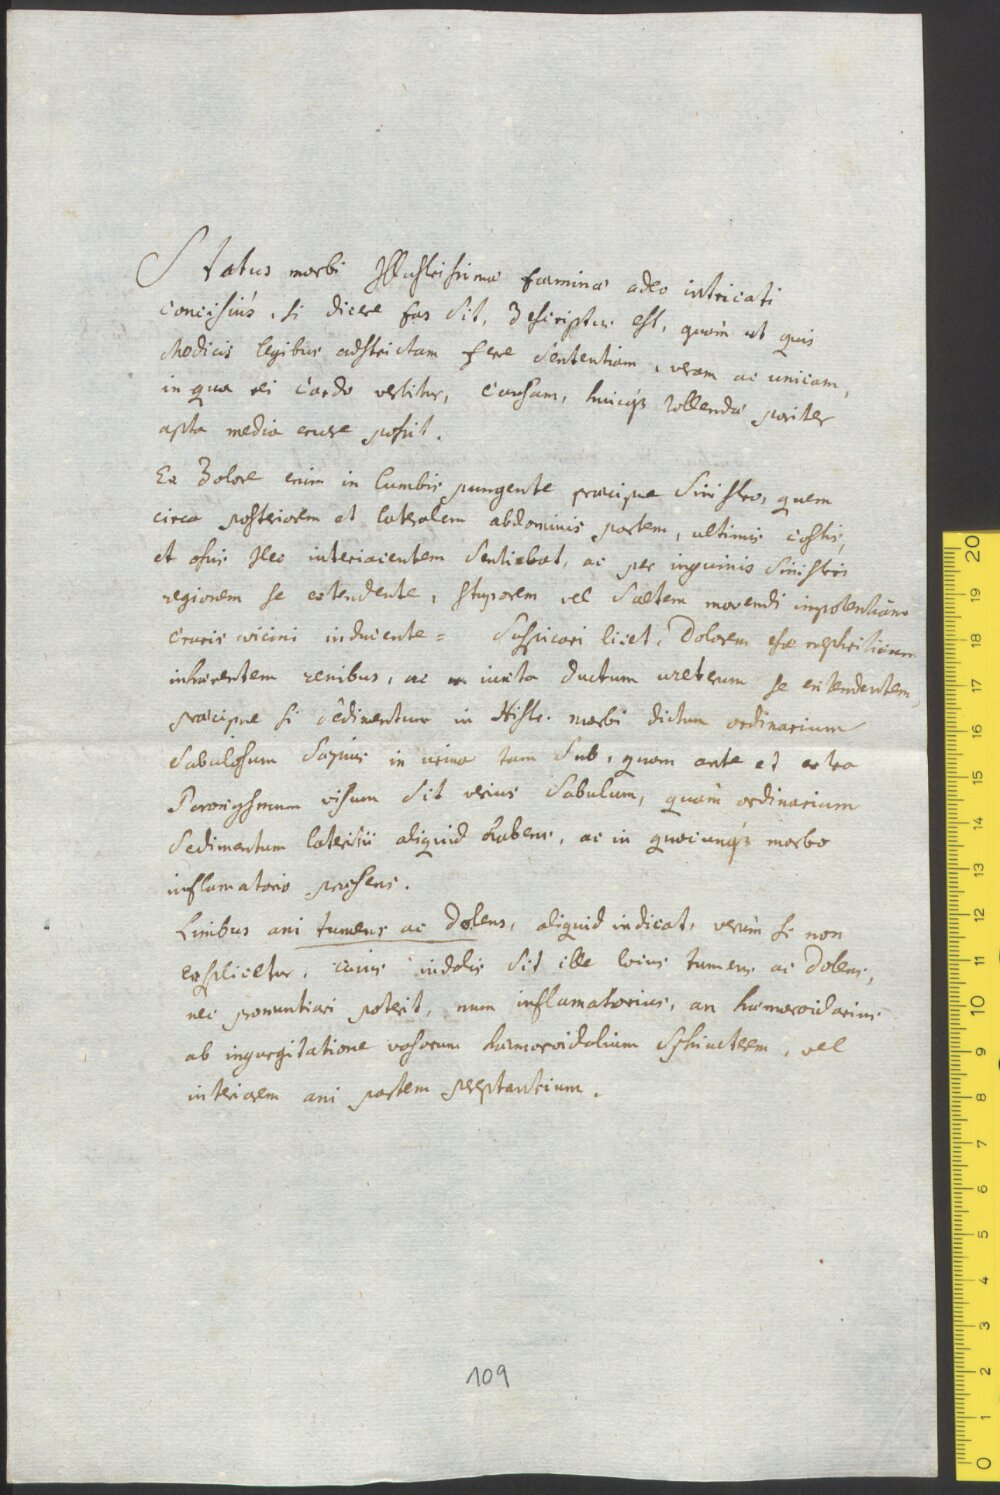 Status morbi Illustrissimæ fæminæ adeo intricati
concisiús, si dicere fas sit, descriptus est, quàm ut quis
Medicis legibus adstrictam fere sententiam, veram ac unicam,
in qua rei cardo vertitur, causam, huicq3 tollendæ pariter
apta media eruere possit.
Ex dolore enim in lumbis pungente præcipue sinistro, quem
circa posteriorem et lateralem abdominis partem, ultimis costis,
et ossis Ileo interiacentem sentiebat, ac per inguinis sinistri
regionem se extendente, stuporem vel saltem movendi impotentiam
cruris vicini inducente = suspicari licet, Dolorem esse nephriticum
inhærentem renibus, ac iuxta ductum ureterum se extendentem,
præcipue si sedimentum in Histr. morbi dictum ordinarium
sabulosum sæpius in urina tam sub, quam ante et extra
Paroxysmum visum sit verius sabulum, quàm ordinarium
sedimentum lateritii aliquid habens, ac in quocunq3 morbo
inflamatorio præsens.
Limbus ani tumens ac dolens, aliquid indicat, verùm si non
explicetur, cuius indolis sit ille locus tumens ac dolens,
nec pronuntiari poterit, num inflamatorius, an hæmoroidarius
ab ingurgitatione vasorum hæmoroidalium Sphincterem, vel
interiorem ani partem reptantium.
109
20
19
18
17
16
15
14
13
12
11
10
9
8
7
6
5
4
3
2
1
0